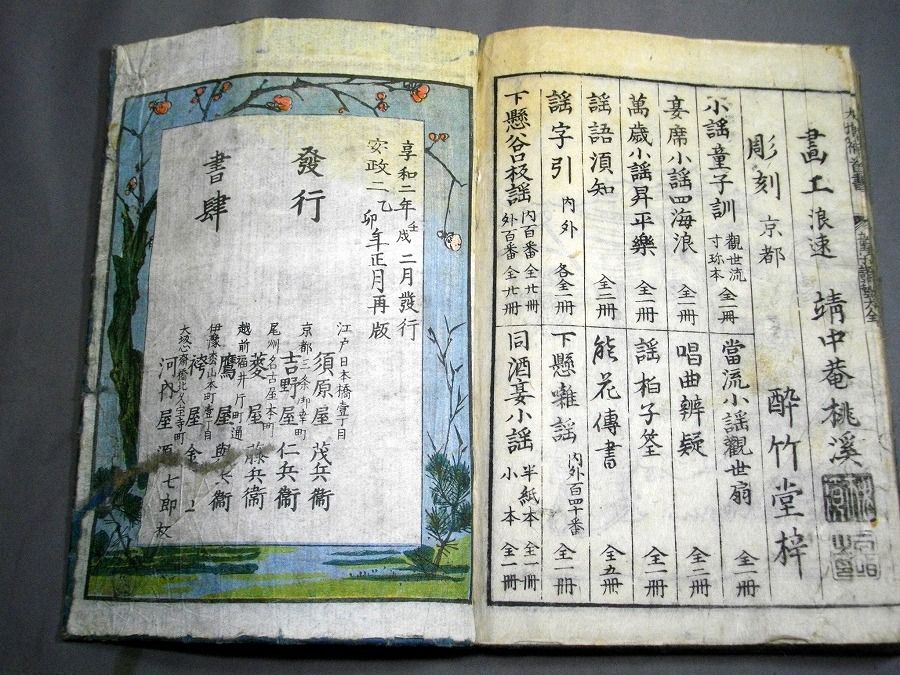 畫工 浪速 靖中菴桃溪
彫刻 京都 酔竹堂梓
小謡童子訓 觀世流 寸珎本 全一冊
宴席小謡四海浪 全一冊
萬歳小謡昇平樂 全一冊
謡語須知 全二冊
謡字引 内外 各全一冊
下懸谷口板謡 内百番 全廿冊 外百番 全廿冊
當流小謡觀世扇 全一冊
唱曲辨疑 全二冊
謡柏子筌 全一冊
能花傳書 全五冊
下懸囃謡 内外百四十番 全一冊
同酒宴小謡 半紙本 全一冊 小本 全一冊
享和二年壬戌二月發行
安政二乙卯年正月再版
發行
書肆
江戸日本橋壹丁目
須原屋茂兵衞
京都三条御幸町
吉野屋仁兵衞
尾州名古屋本町
菱屋藤兵衞
越前福井片町通
鷹屋與兵衞
伊豫松山本町壹丁目
袴屋金
大坂心齋橋北久宝寺町
河内屋源七郎板